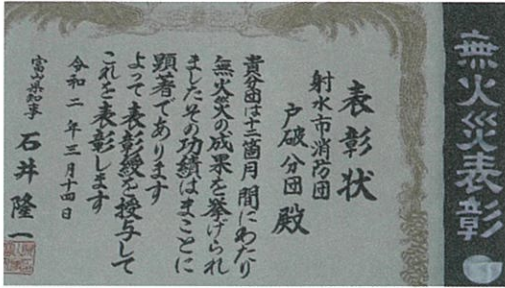 無火災表彰
表彰状
射水市消防団
戸破分団殿
貴分団は十二箇月間にわたり
無火災の成果を挙げられ
ましたその功績はまことに
顕著であります
よって表彰綬を授与して
これを表彰します
令和二年三月十四日
富山県知事 石井隆一